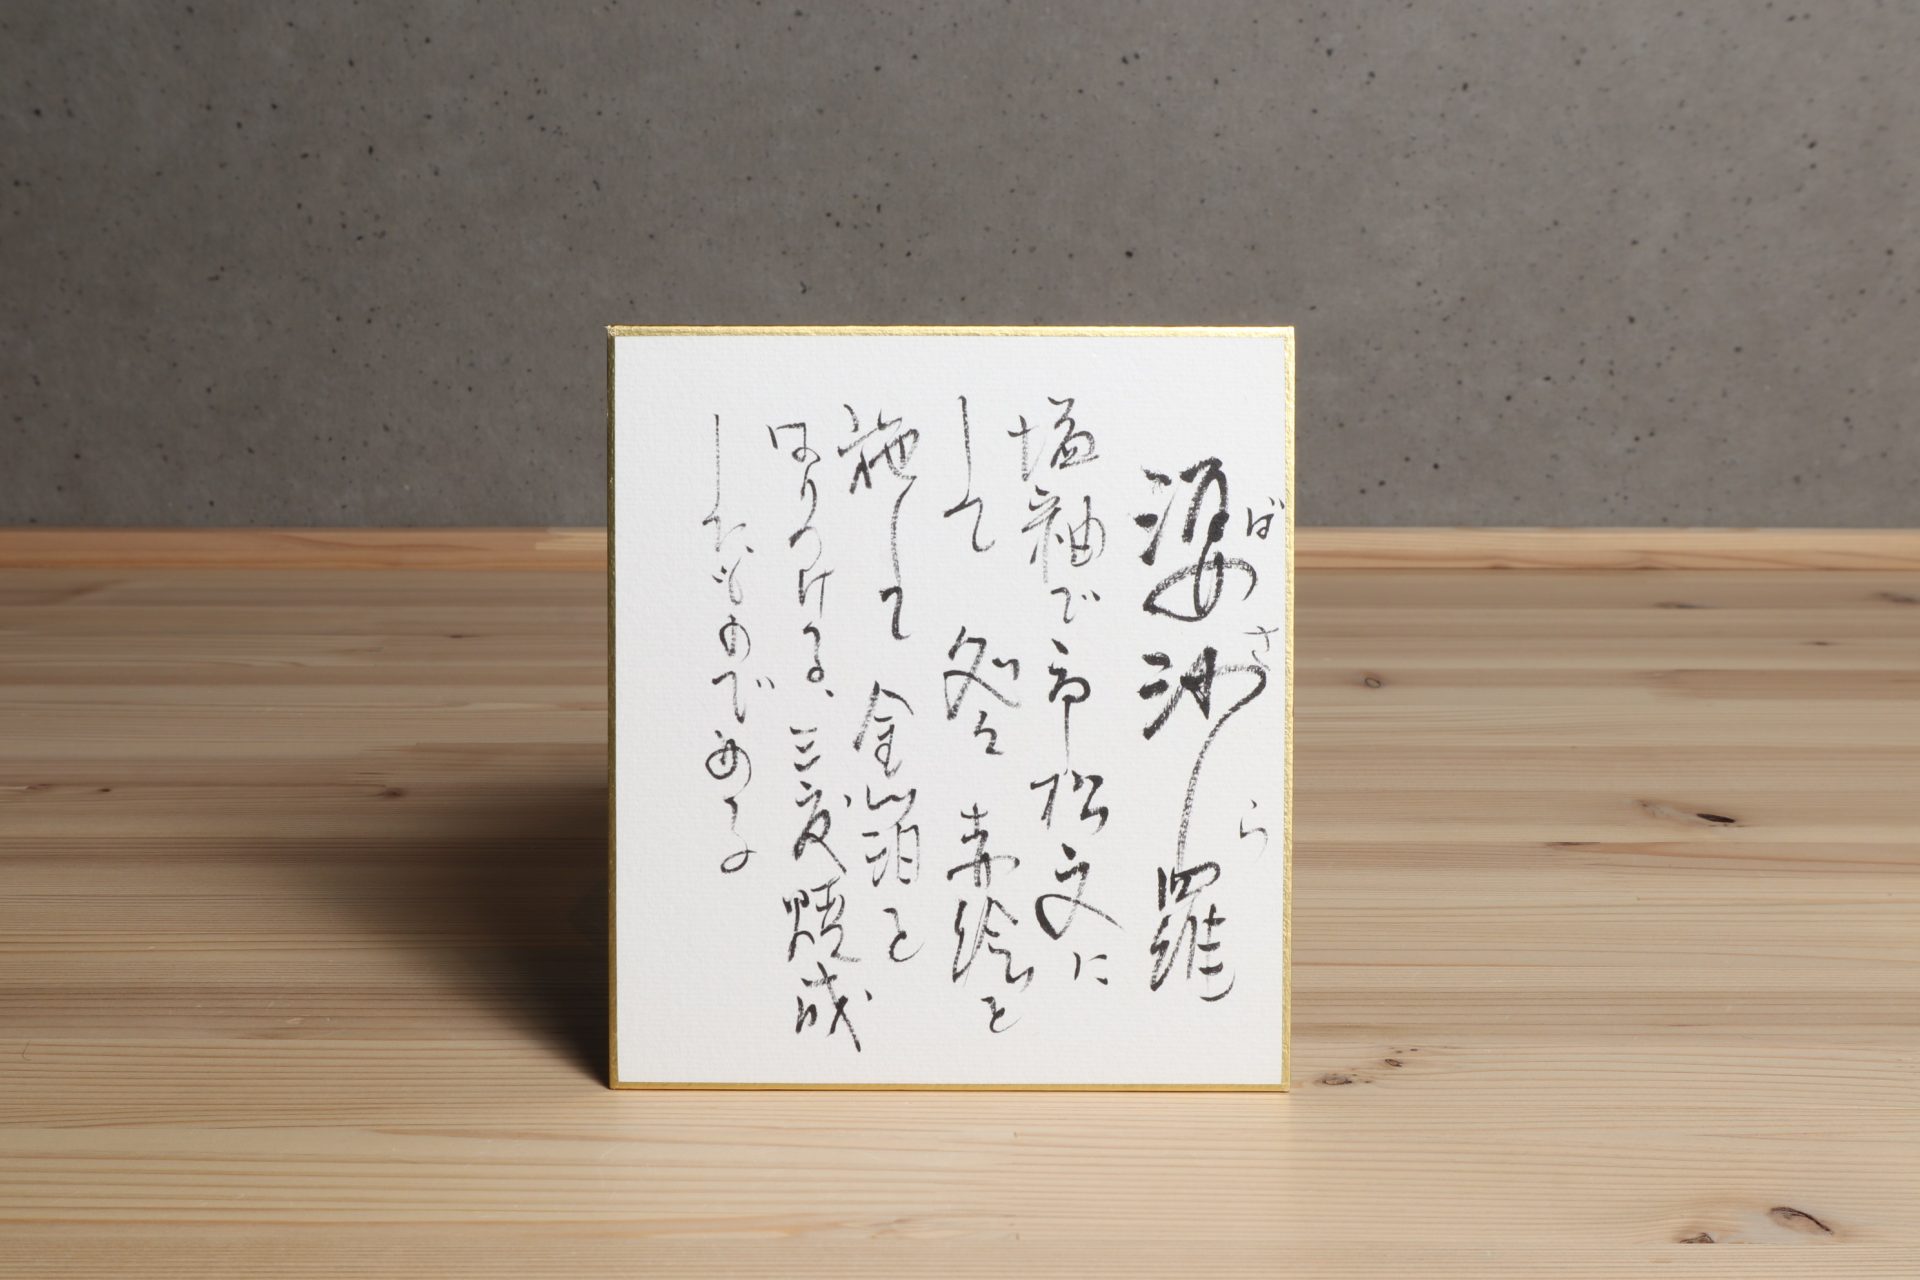 婆沙羅
ばさら
塩釉で市松文に
して 処々 赤絵を
施して 金箔を
はりつける、三度焼成
したものである